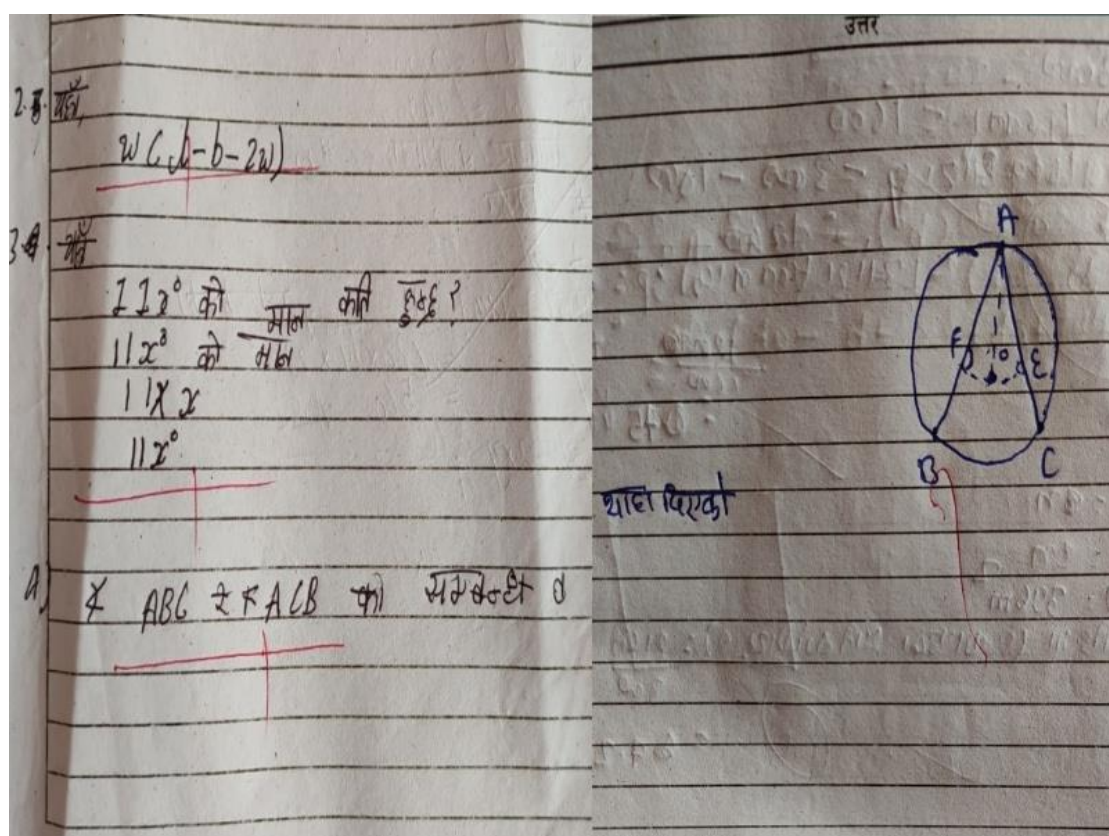 2. यहाँ,
w(l-b-2w)
3. यहाँ
11x° को मान कति हुन्छ?
11x° को मान
11x x
11x°
ABC र ACB को सम्बन्ध
उत्तर
A
F
O
E
B
C
यहाँ दिएको